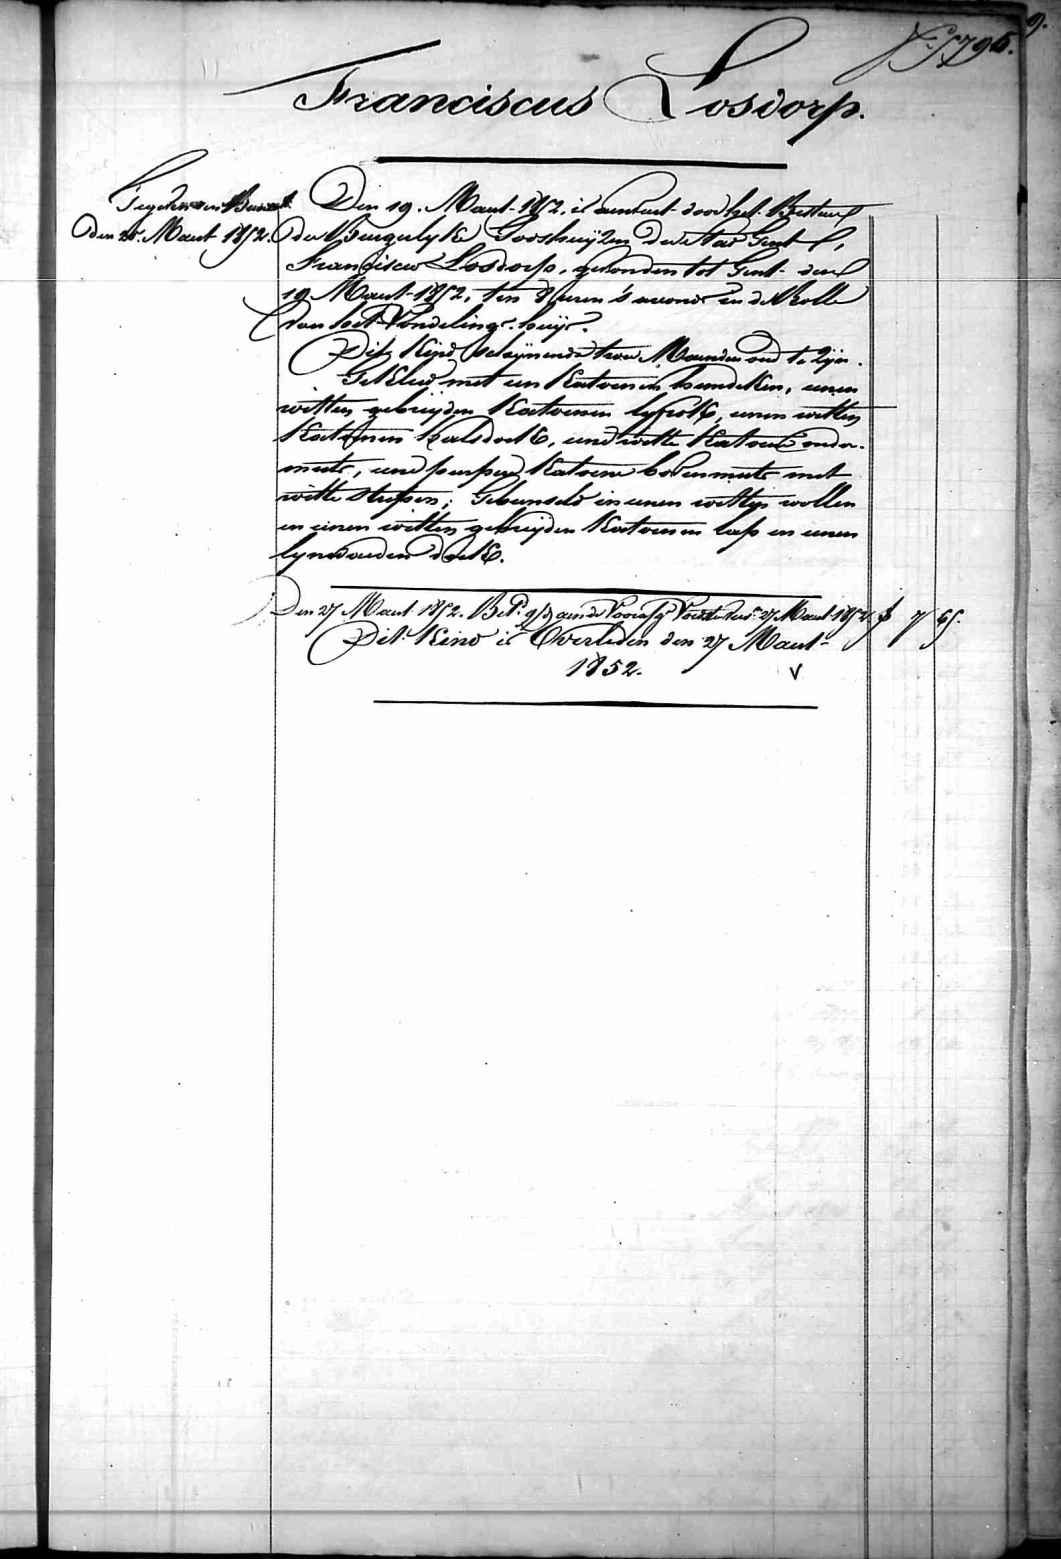 9.
N.º 1796.
Franciscus Losdorp.
Den 19. Maart 1852, is aenveert door het Bestuur
den 20. Maart 1852.
der Burgerlyke Godshuyzen der Stad Gent
Franciscus Losdorp, gevonden tot Gent den
19 Maart 1852, ten 8 uren 's avonds in de Rolle
van het Vondelingshuys.
Dit Kind schynende twee Maanden oud te zyn.
Gekleed met een Katoenen hemdeken, eenen
witten gebreyden Katoenen lyfrok, eenen witten
Katoenen halsdoek, eene witte Katoene onder-
muts, eene purpere Katoene bovenmuts met
witte strepen; Gebunseld in eenen witten wollen
en eenen witten gebreyden Katoenen lap en eenen
lynwaeden doek.
Den 27 Maart 1852. Maart 1852 f 7 65.
Dit Kind is Overleden den 27 Maart
1852.